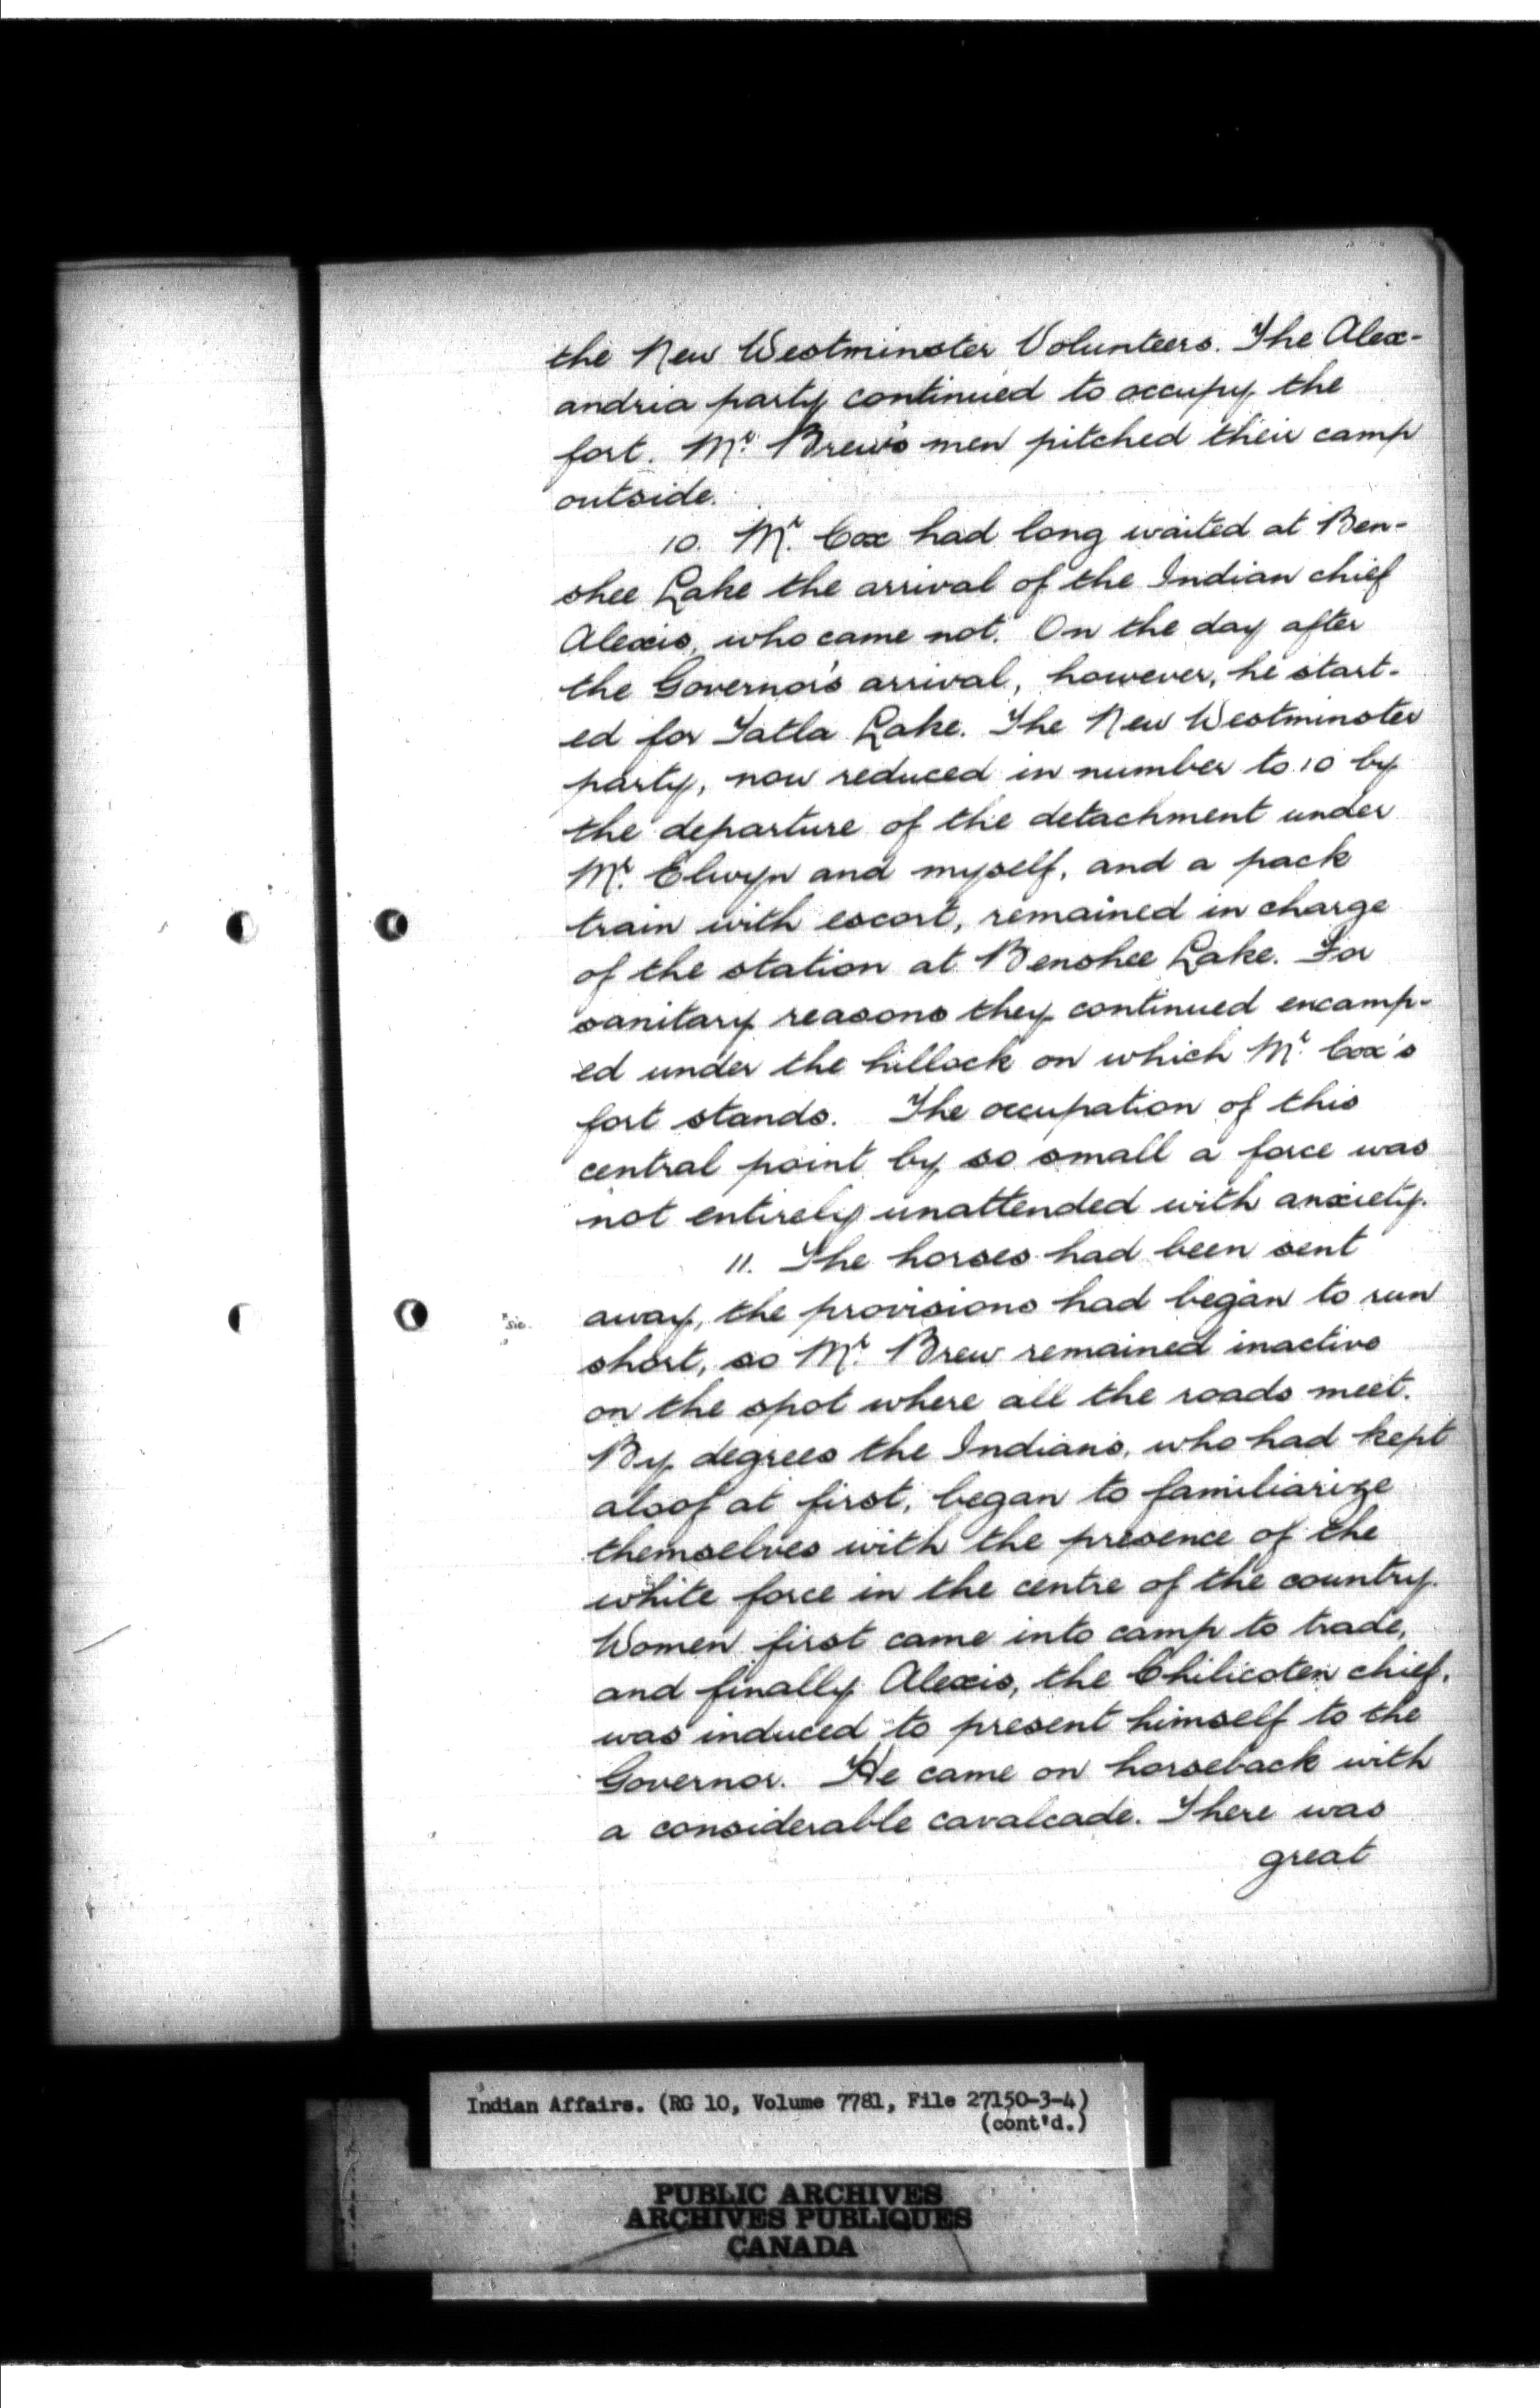 the New Westminster Volunteers. The Alex-
andria party continued to occupy the
fort. Mr. Brew's men pitched their camp
outside.
10. Mr. Cox had long waited at Ben-
shee Lake the arrival of the Indian chief
Alexis, who came not. On the day after
the Governor's arrival, however, he start-
ed for Tatla Lake. The New Westminster
party, now reduced in number to 10 by
the departure of the detachment under
Mr. Elwyn and myself, and a pack
train with escort, remained in charge
of the station at Benshee Lake. For
sanitary reasons they continued encamp-
ed under the hillock on which Mr. Cox's
fort stands. The occupation of this
central point by so small a force was
not entirely unattended with anxiety.
11. The horses had been sent
"sic. away, the provisions had began to run
short, so Mr. Brew remained inactive
on the spot where all the roads meet.
By degrees the Indians, who had kept
aloof at first, began to familiarize
themselves with the presence of the
white force in the centre of the country.
Women first came into camp to trade,
and finally Alexis, the Chilicoten chief,
was induced to present himself to the
Governor. He came on horseback with
a considerable cavalcade. There was
great
Indian Affairs. (RG 10, Volume 7781, File 27150-3-4)
(cont'd.)
PUBLIC ARCHIVES
ARCHIVES PUBLIQUES
CANADA